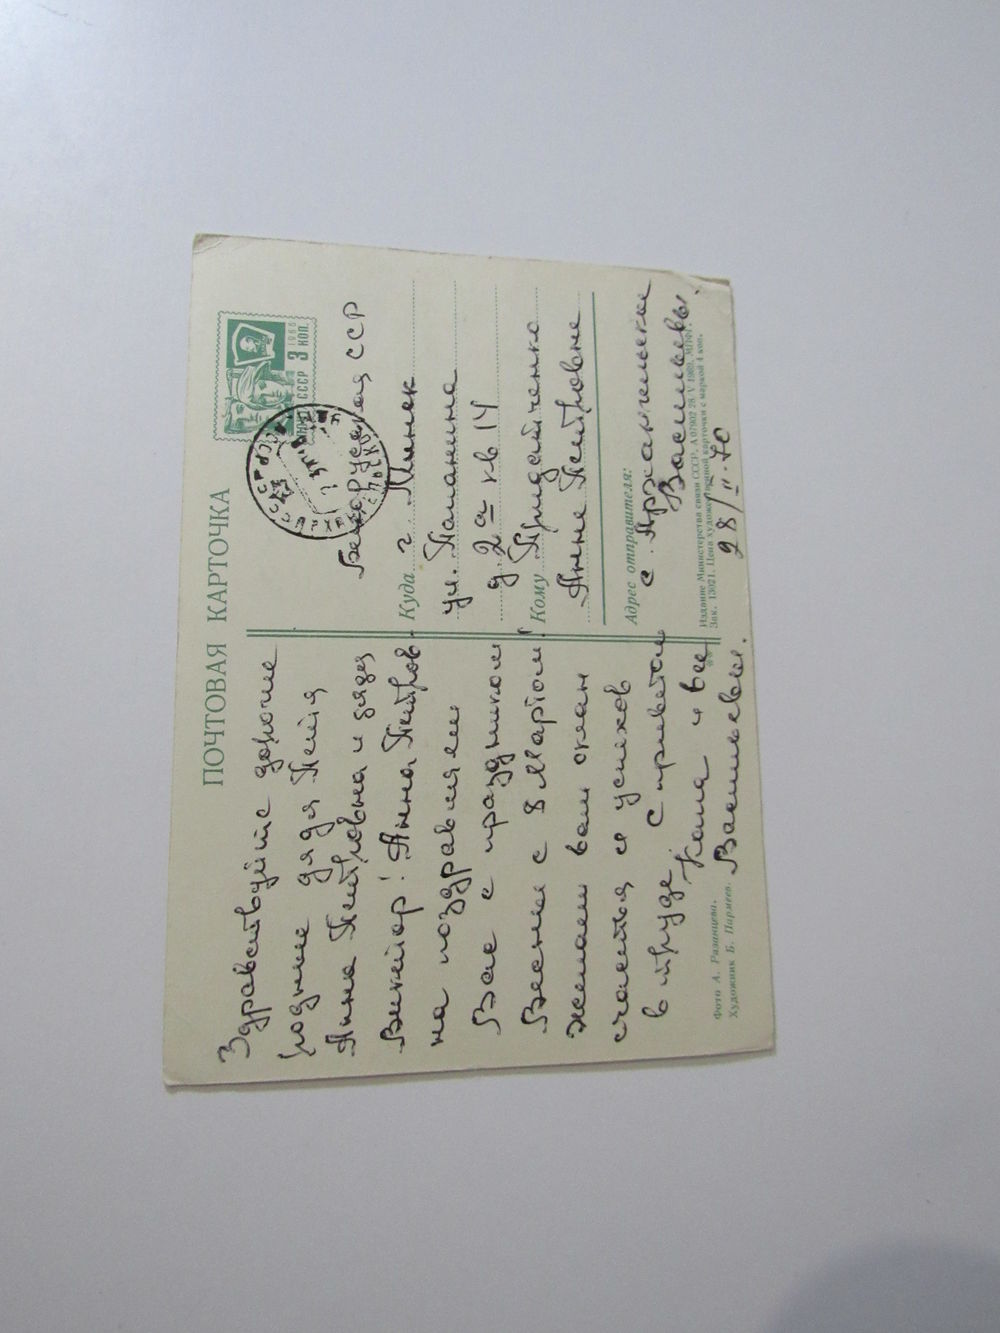 ПОЧТОВАЯ КАРТОЧКА
Здравствуйте дорогие
родные дядя Петя
Анна Петровна и дядя
Виктор! Анна Петров
на поздравляем
Вас с праздником
Весны с 8 Мартом!
желаем вам океан
счастья и успехов
в труде. С приветом
и все
Васильевы.
Фото А. Рязанцева.
Художник Б. Пармеев.
ПОЧТА СССР 3 КОП.
1966
Белорусская ССР
Куда г. Минск
ул.
д 2а кв 14
Кому
Анне Петровне
Адрес отправителя:
с. Архангельское
Васильевы.
Издание Министерства связи СССР. А 07902 28.V 1969. МПФГ.
Зак. 13021. Цена художественной карточки с маркой 4 коп.
28/II-70